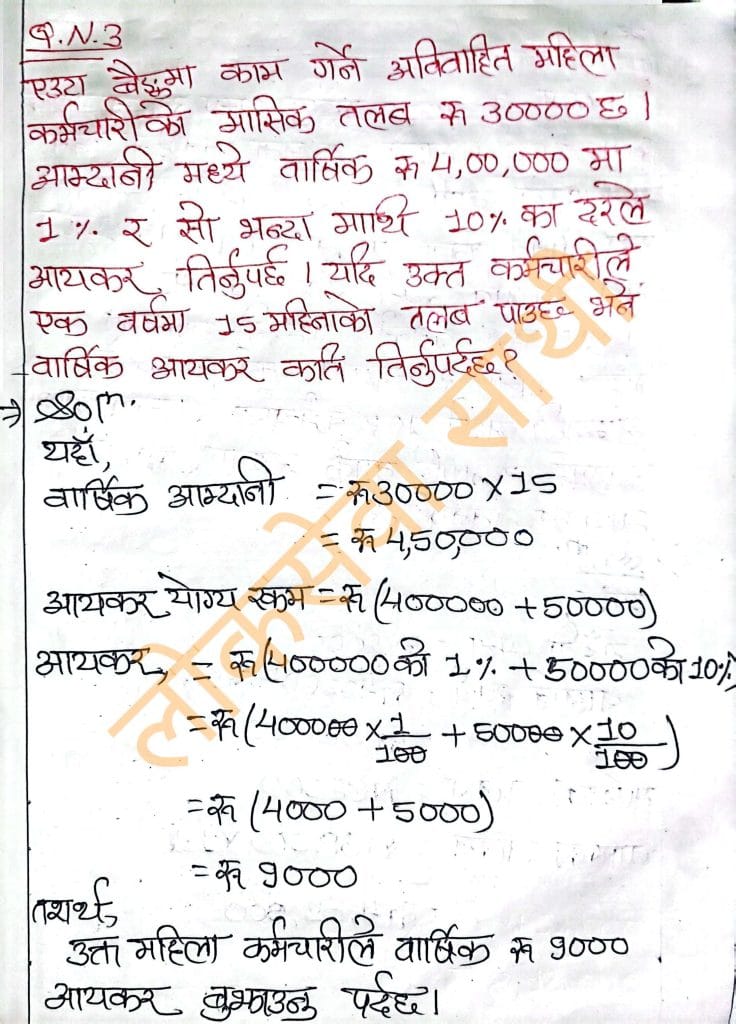 Q.N.3
एउटा बैङ्कमा काम गर्ने अविवाहित महिला
कर्मचारीको मासिक तलब रू 30000 छ।
आम्दानी मध्ये वार्षिक रू 4,00,000 मा
1% र सो भन्दा माथि 10% का दरले
आयकर तिर्नुपर्छ। यदि उक्त कर्मचारीले
एक वर्षमा 15 महिनाको तलब पाउछ भने
वार्षिक आयकर कति तिर्नुपर्दछ?
⇒ Solⁿ.
यहाँ,
वार्षिक आम्दानी = रू 30000 × 15
= रू 4,50,000
आयकर योग्य रकम = रू (400000 + 50000)
आयकर, = रू (400000 को 1% + 50000 को 10%)
= रू (400000 × 1/100 + 50000 × 10/100)
= रू (4000 + 5000)
= रू 9000
तसर्थ,
उक्त महिला कर्मचारीले वार्षिक रू 9000
आयकर बुझाउनु पर्दछ।
लोकसेवा साथी